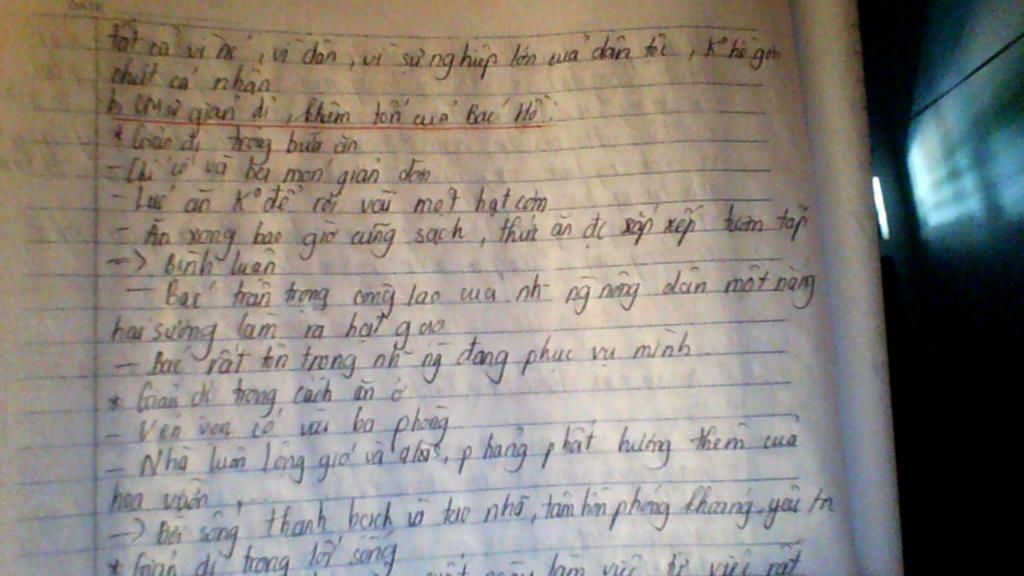 tất cả vì nc, vì dân, vì sự nghiệp lớn của dân tộc, K° hề gợn
chút cá nhân
giản dị, khiêm tốn của Bác Hồ:
* Giản dị trong bữa ăn
- Chỉ có vài ba món giản đơn
- Lúc ăn K° để rơi vãi một hạt cơm
- Ăn xong bao giờ cũng sạch, thức ăn đc sắp xếp tươm tất
-> Bình luận
- Bác trân trọng công lao của nh- ng nông dân một nắng
hai sương làm ra hạt gạo
- Bác rất tôn trọng nh- ng đang phục vụ mình
* Giản dị trong cách ăn ở
- Vẻn vẹn có vài ba phòng
- Nhà luôn lộng gió và a/sáng, phảng phất hương thơm của
hoa vườn,
-> Đời sống thanh bạch và tao nhã, tâm hồn phóng khoáng, yêu tn
* Giản dị trong lối sống
làm việc việc rất